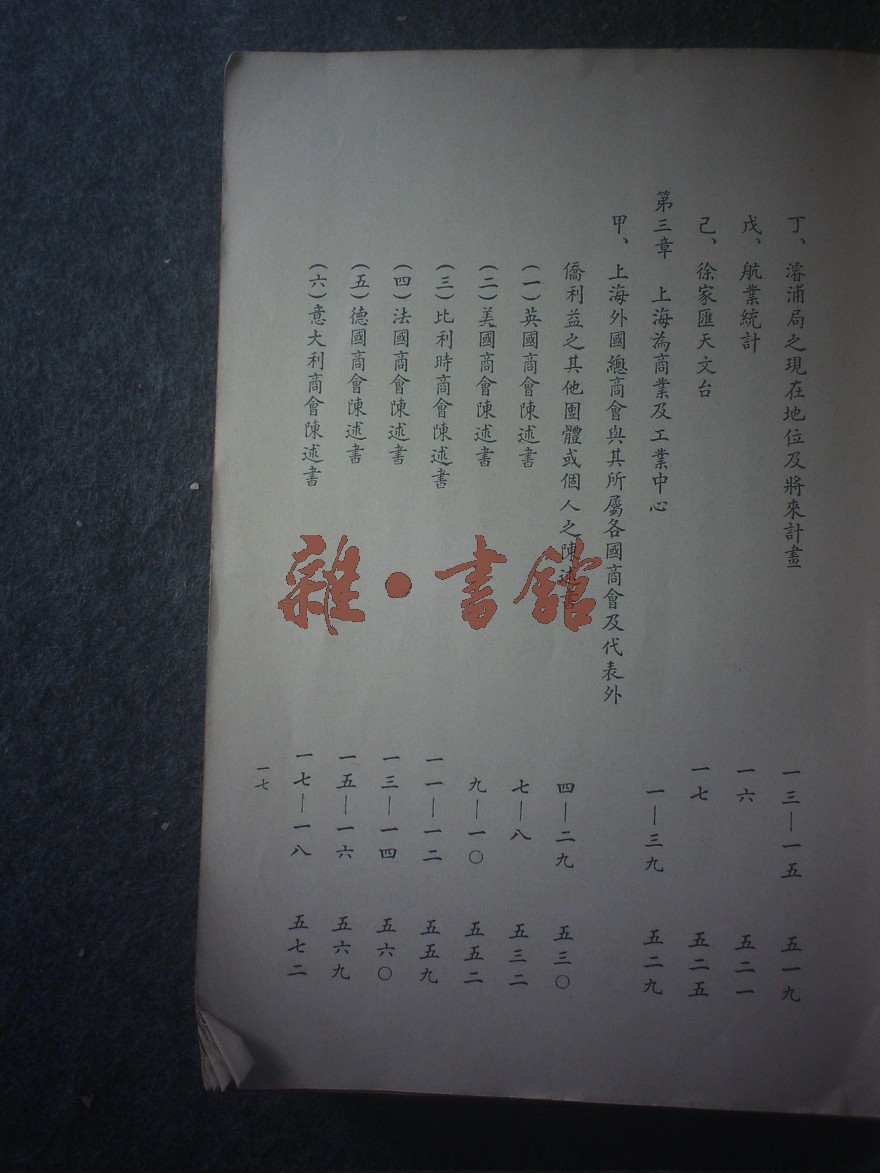 丁、濬浦局之現在地位及將來計畫 一三—一五 五一九
戊、航業統計 一六 五二一
己、徐家匯天文台 一七 五二五
第三章 上海為商業及工業中心 一—三九 五二九
甲、上海外國總商會與其所屬各國商會及代表外
僑利益之其他團體或個人之陳述書 四—二九 五三〇
(一)英國商會陳述書 七—八 五三二
(二)美國商會陳述書 九—一〇 五五二
(三)比利時商會陳述書 一一—一二 五五九
(四)法國商會陳述書 一三—一四 五六〇
(五)德國商會陳述書 一五—一六 五六九
(六)意大利商會陳述書 一七—一八 五七二
一七
雜·書館